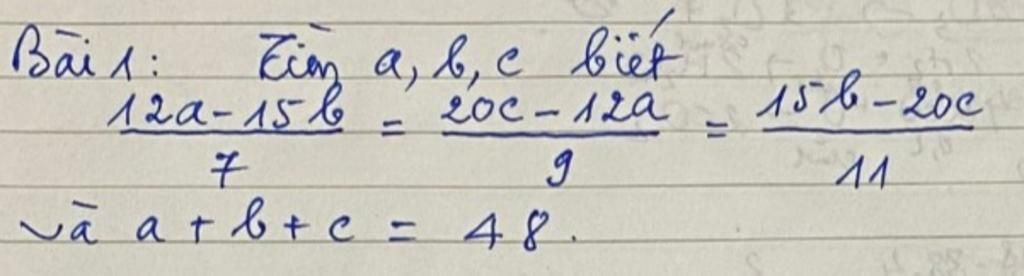 Bài 1: Tìm a, b, c biết
12a - 15b / 7 = 20c - 12a / 9 = 15b - 20c / 11
và a + b + c = 48.